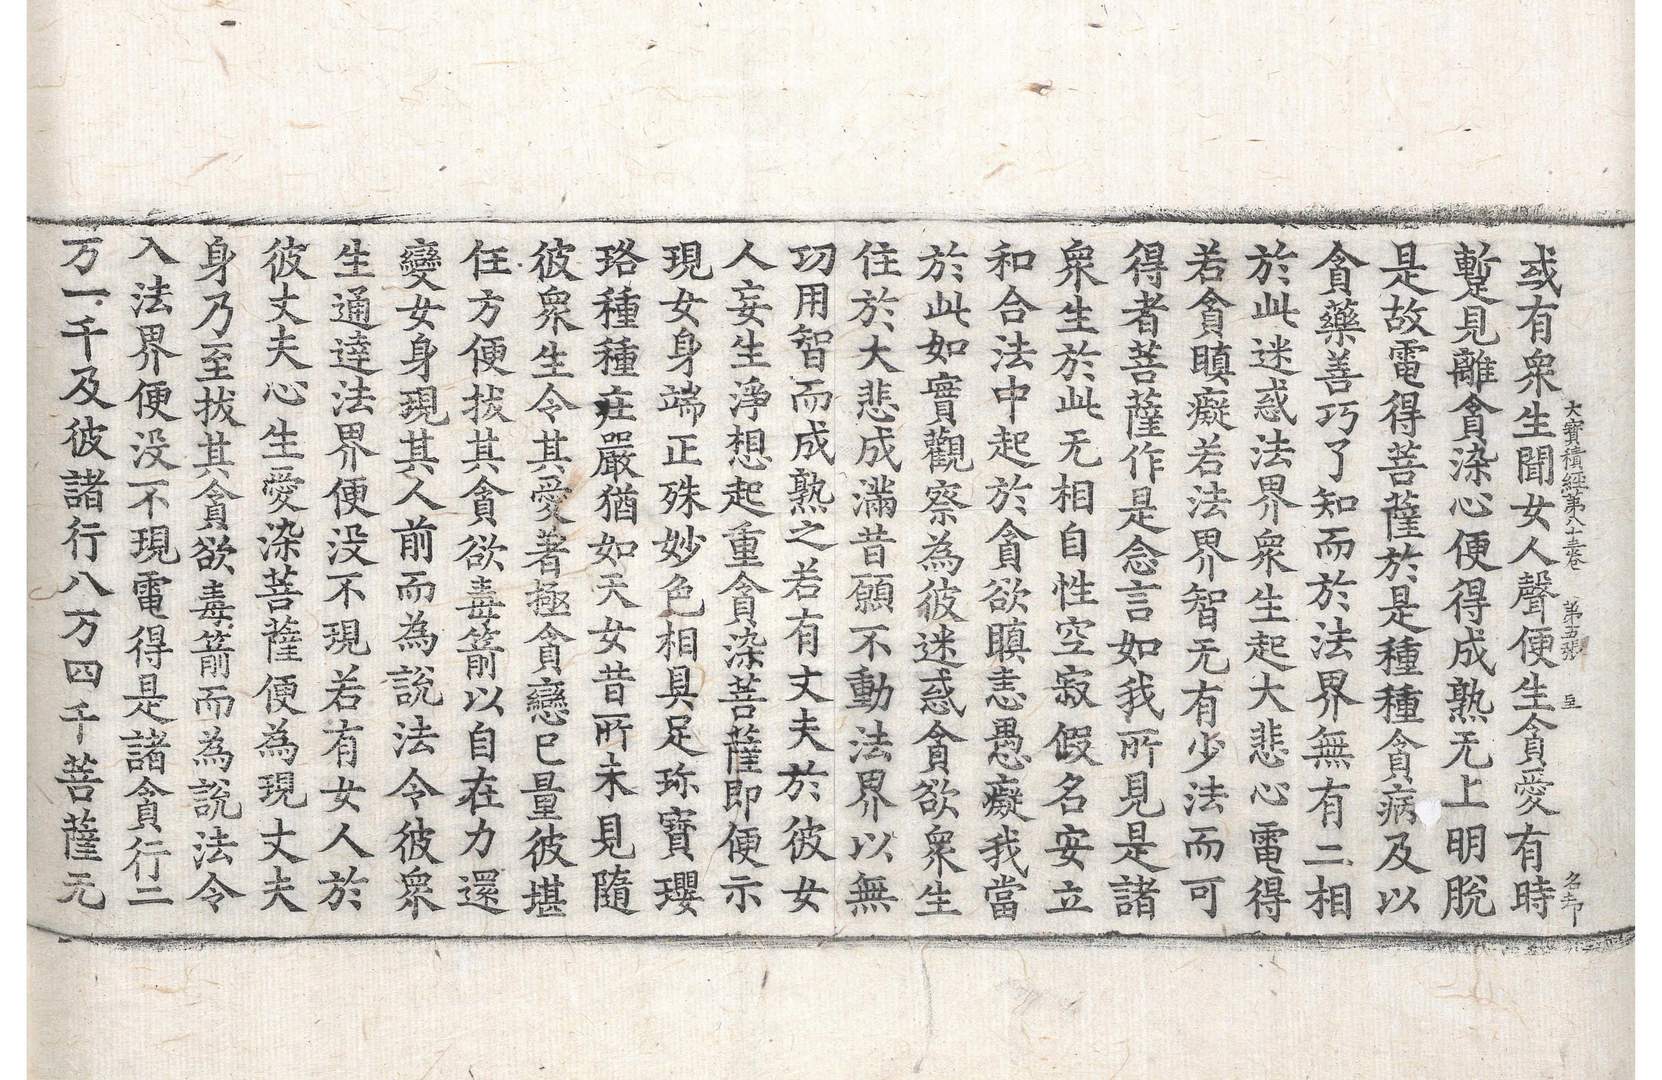 大寶積經第八十三卷 第五張 皇 名圭印
或有衆生聞女人聲便生貪愛有時
蹔見離貪染心便得成熟无上明脫
是故電得菩薩於是種種貪病及以
貪藥善巧了知而於法界無有二相
於此迷惑法界衆生起大悲心電得
若貪瞋癡若法界智无有少法而可
得者菩薩作是念言如我所見是諸
衆生於此无相自性空寂假名安立
和合法中起於貪欲瞋恚愚癡我當
於此如實觀察為彼迷惑貪欲衆生
住於大悲成滿昔願不動法界以無
功用智而成熟之若有丈夫於彼女
人妄生淨想起重貪染菩薩即便示
現女身端正殊妙色相具足珎寶瓔
珞種種庄嚴猶如天女昔所未見隨
彼衆生令其愛著極貪戀已量彼堪
任方便拔其貪欲毒箭以自在力還
變女身現其人前而為說法令彼衆
生通達法界便沒不現若有女人於
彼丈夫心生愛染菩薩便為現丈夫
身乃至拔其貪欲毒箭而為說法令
入法界便没不現電得是諸貪行二
万一千及彼諸行八万四千菩薩元